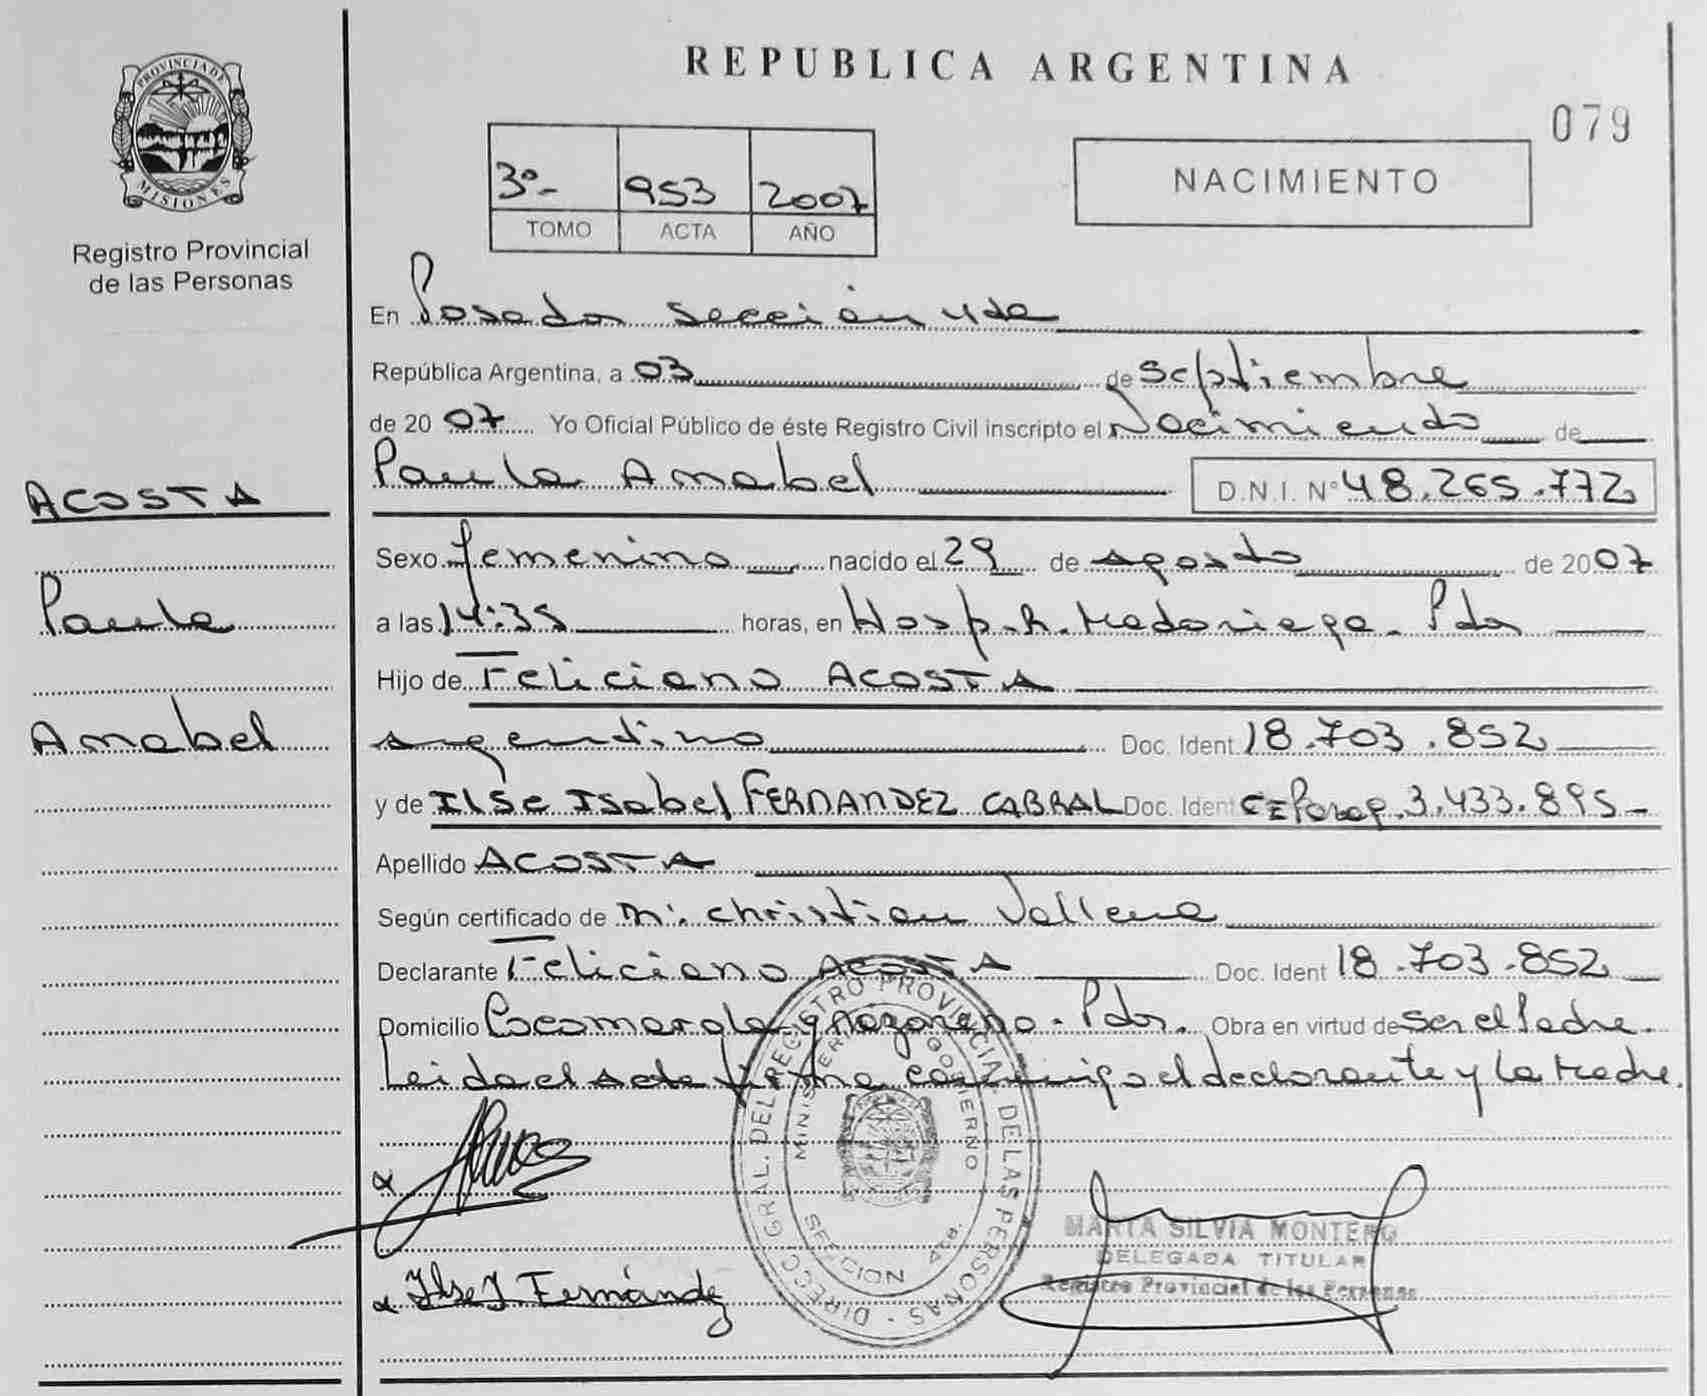 PROVINCIA DE
MISIONES
Registro Provincial
de las Personas
ACOSTA
Paula
Amabel
REPUBLICA ARGENTINA
079
NACIMIENTO
3º- 953 2007
TOMO ACTA AÑO
En Posadas sección 4ta
República Argentina, a 03 de septiembre
de 2007 Yo Oficial Público de éste Registro Civil inscripto el Nacimiento de
Paula Amabel D.N.I. Nº 48.265.772
Sexo femenino nacido el 29 de agosto de 2007
a las 14:35 horas, en Hosp. R. Madariaga - Pdas
Hijo de Feliciano ACOSTA
argentino Doc. Ident. 18.703.852
y de Ilse Isabel FERNANDEZ CABRAL Doc. Ident CE Parag. 3.433.895-
Apellido ACOSTA
Según certificado de M: Christian
Declarante Feliciano ACOSTA Doc. Ident 18.703.852
Domicilio Cocomarola y Nazareno - Pdas. Obra en virtud de ser el Padre.
Leida el acta firma conmigo el declarante y la Madre.
DIRECC GRAL. DEL REGISTRO PROVINCIAL DE LAS PERSONAS
MINISTERIO GOBIERNO
SECCION 4ta.
Ilse I Fernández
MARTA SILVIA MONTERO
DELEGADA TITULAR
Registro Provincial de las Personas